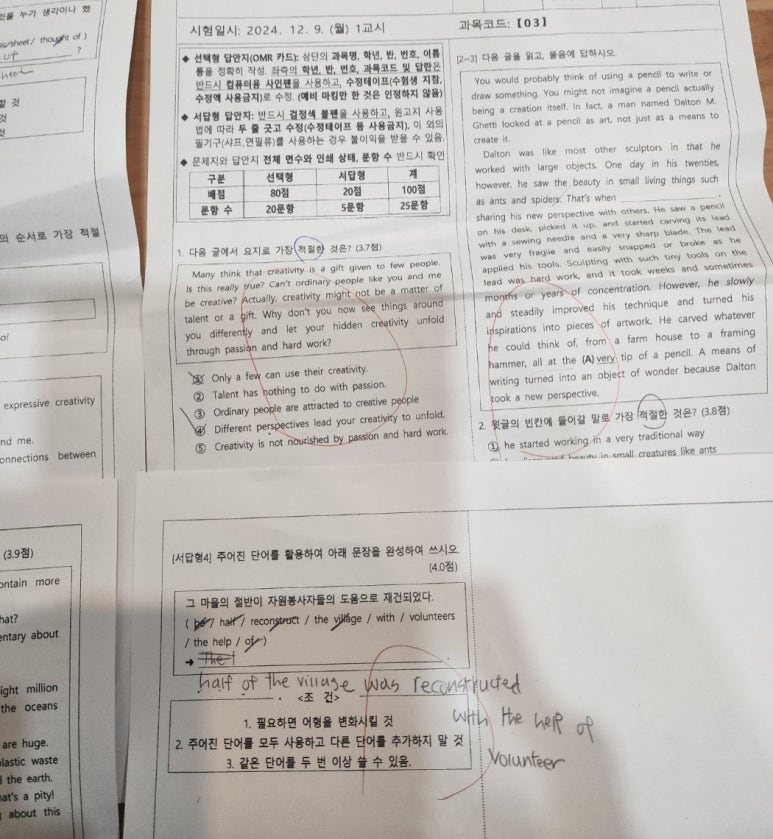 것을 누가 생각이나 했
sheet / thought of )
of ?
할 것
것
것
의 순서로 가장 적절
expressive creativity
nd me.
onnections between
시험일시: 2024. 12. 9. (월) 1교시
과목코드:【03】
◆ 선택형 답안지(OMR 카드): 상단의 과목명, 학년, 반, 번호, 이름
등을 정확히 작성. 좌측의 학년, 반, 번호, 과목코드 및 답란은
반드시 컴퓨터용 사인펜을 사용하고, 수정테이프(수험생 지참,
수정액 사용금지)로 수정. (예비 마킹만 한 것은 인정하지 않음)
◆ 서답형 답안지: 반드시 검정색 볼펜을 사용하고, 원고지 사용
법에 따라 두 줄 긋고 수정(수정테이프 등 사용금지), 이 외의
필기구(샤프,연필류)를 사용하는 경우 불이익을 받을 수 있음.
◆ 문제지와 답안지 전체 면수와 인쇄 상태, 문항 수 반드시 확인
구분 선택형 서답형 계
배점 80점 20점 100점
문항 수 20문항 5문항 25문항
1. 다음 글에서 요지로 가장 적절한 것은? (3.7점)
Many think that creativity is a gift given to few people.
Is this really true? Can't ordinary people like you and me
be creative? Actually, creativity might not be a matter of
talent or a gift. Why don't you now see things around
you differently and let your hidden creativity unfold
through passion and hard work?
① Only a few can use their creativity.
② Talent has nothing to do with passion.
③ Ordinary people are attracted to creative people
④ Different perspectives lead your creativity to unfold.
⑤ Creativity is not nourished by passion and hard work.
[2~3] 다음 글을 읽고, 물음에 답하시오.
You would probably think of using a pencil to write or
draw something. You might not imagine a pencil actually
being a creation itself. In fact, a man named Dalton M.
Ghetti looked at a pencil as art, not just as a means to
create it.
Dalton was like most other sculptors in that he
worked with large objects. One day in his twenties,
however, he saw the beauty in small living things such
as ants and spiders. That's when ____________,
sharing his new perspective with others. He saw a pencil
on his desk, picked it up, and started carving its lead
with a sewing needle and a very sharp blade. The lead
was very fragile and easily snapped or broke as he
applied his tools. Sculpting with such tiny tools on the
lead was hard work, and it took weeks and sometimes
months or years of concentration. However, he slowly
and steadily improved his technique and turned his
inspirations into pieces of artwork. He carved whatever
he could think of, from a farm house to a framing
hammer, all at the (A) very tip of a pencil. A means of
writing turned into an object of wonder because Dalton
took a new perspective.
2. 윗글의 빈칸에 들어갈 말로 가장 적절한 것은? (3.8점)
① he started working in a very traditional way
beauty in small creatures like ants
(3.9점)
ontain more
hat?
entary about
ight million
the oceans
are huge.
plastic waste
l the earth.
hat's a pity!
about this
[서답형4] 주어진 단어를 활용하여 아래 문장을 완성하여 쓰시오.
(4.0점)
그 마을의 절반이 자원봉사자들의 도움으로 재건되었다.
( be / half / reconstruct / the village / with / volunteers
/ the help / of )
➔ The
half of the village was reconstructed
with the help of
Volunteer
<조 건>
1. 필요하면 어형을 변화시킬 것
2. 주어진 단어를 모두 사용하고 다른 단어를 추가하지 말 것
3. 같은 단어를 두 번 이상 쓸 수 있음.